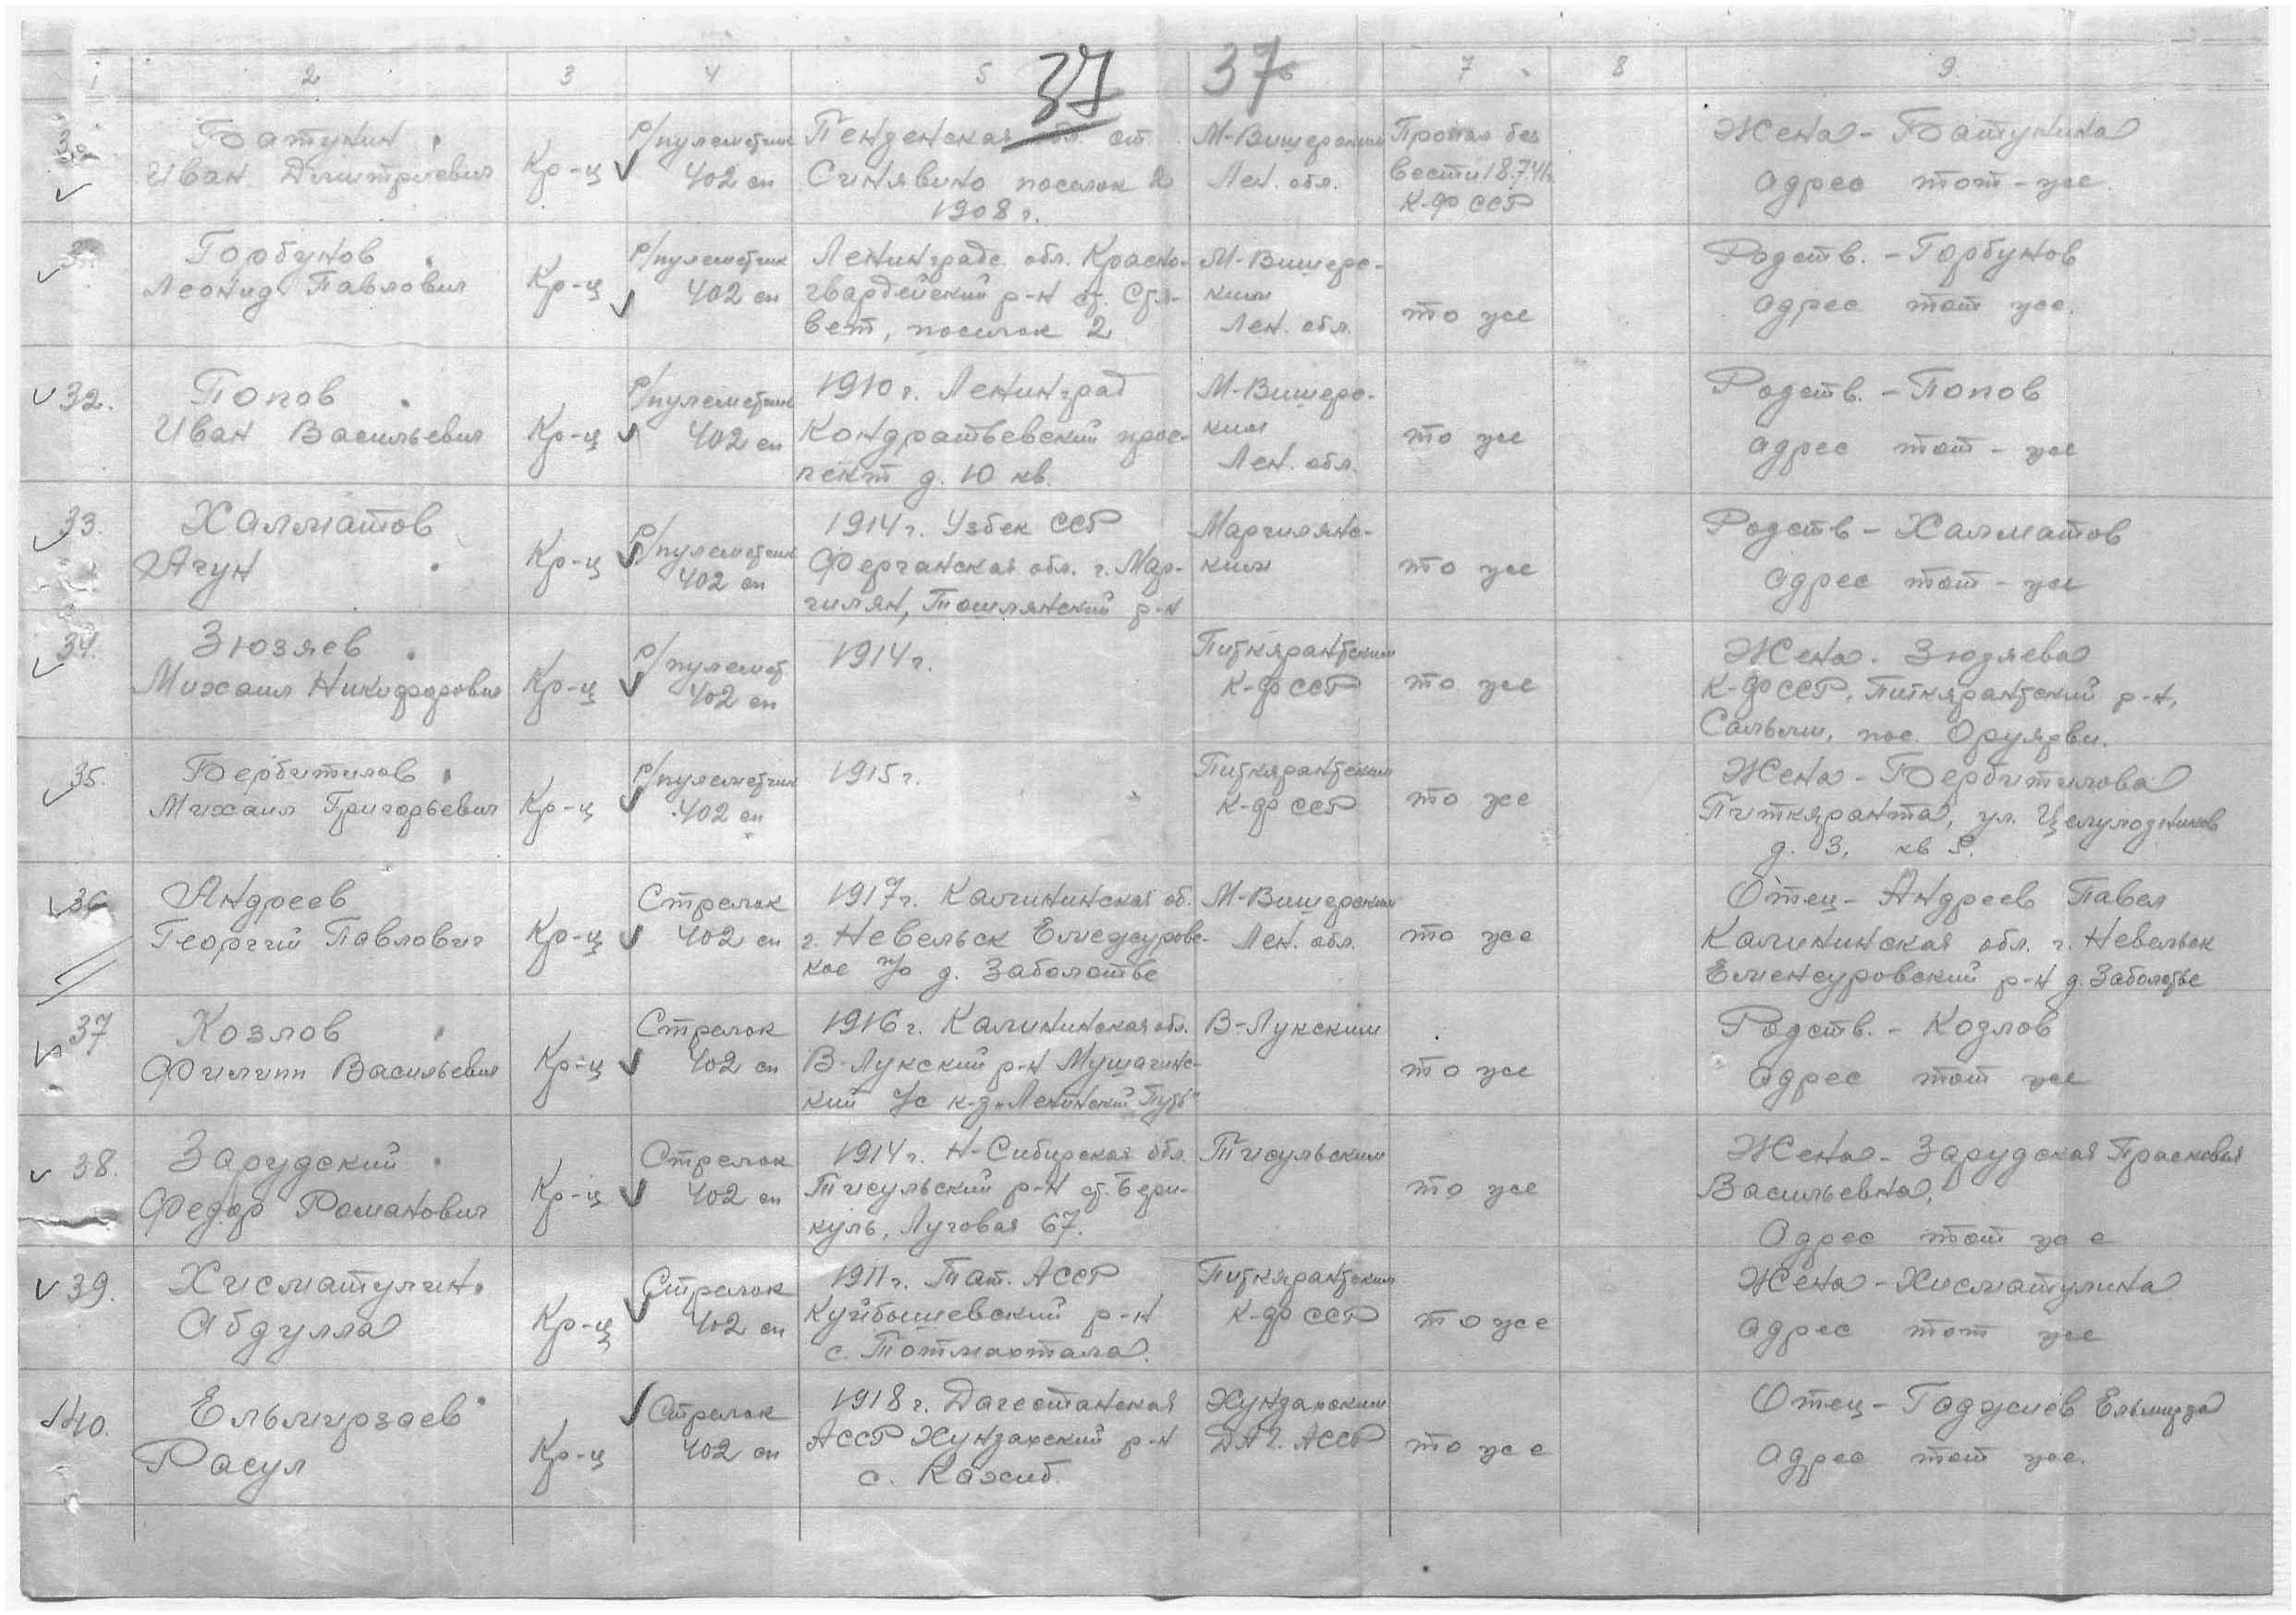 37 37
1 2 3 4 5 6 7 8 9
Батунин
Иван Дмитриевич
Кр-ц
Р/пулеметчик
402 сп
Пенденская обл. ст.
Синявино поселок 2
1908 г.
М-Вишерским
Лен. обл.
Пропал без
вести 18.7.41г.
К-ФССР
Жена - Батунина
адрес тот-же.
Горбунов
Леонид Павлович
Кр-ц
Р/пулеметчик
402 сп
Ленинградс. обл. Красно-
гвардейский р-н ст.
вет, поселок 2
М-Вишерс-
ким
Лен. обл.
то же
Родств. - Горбунов
адрес тот же.
32.
Попов
Иван Васильевич
Кр-ц
Р/пулеметчик
402 сп
1910 г. Ленинград
Кондратьевский прос-
пект д. 10 кв.
М-Вишерс-
ким
Лен. обл.
то же
Родств. - Попов
адрес тот-же
33.
Халматов
Агун
Кр-ц
Р/пулеметчик
402 сп
1914 г. Узбек ССР
Ферганская обл. г. Мар-
гилян, Ташлянский р-н
Маргилянс-
ким
то же
Родств - Халматов
адрес тот-же
34.
Зюзяев
Михаил Никифорович
Кр-ц
Р/пулемет.
402 сп
1914 г.
Питкярантским
К-ФССР
то же
Жена. Зюзяева
К-ФССР, Питкярантский р-н,
Сальми, пос. Оруярви.
35.
Бербитилов
Михаил Григорьевич
Кр-ц
Р/пулеметчик
402 сп
1915 г.
Питкярантским
К-ФССР
то же
Жена - Бербитилова
Питкяранта, ул. Целулозников
д. 3, кв 5.
36
Андреев
Георгий Павлович
Кр-ц
Стрелок
402 сп
1917 г. Калининская об.
г. Невельск Емежуровс-
кое п/о д. Заболотье
М-Вишерским
Лен. обл.
то же
Отец - Андреев Павел
Калининская обл. г. Невельск
Еменсуровский р-н д. Заболотье
37
Козлов
Филипп Васильевич
Кр-ц
Стрелок
402 сп
1916 г. Калининская обл.
В-Лукский р-н Мушагинс-
кий с/с к-з „Ленинский Путь"
В-Лукским
то же
Родств. - Козлов
адрес тот же
38.
Зарудский
Федор Романович
Кр-ц
Стрелок
402 сп
1914 г. Н-Сибирская обл.
Тисульский р-н ст. Бери-
куль, Луговая 67.
Тисульским
то же
Жена - Зарудская Прасковья
Васильевна,
Адрес тот же
39.
Хисматулин
Абдулла
Кр-ц
Стрелок
402 сп
1911 г. Тат. АССР
Куйбышевский р-н
с. Татмактала.
Питкярантским
К-ФССР
то же
Жена - Хисматулина
адрес тот же
40.
Ельмирзаев
Расул
Кр-ц
Стрелок
402 сп
1918 г. Дагестанская
АССР Хунзахский р-н
с. Кахиб.
Хунзахским
ДАГ. АССР
то же
Отец - Гаджиев Ельмирза
адрес тот же.